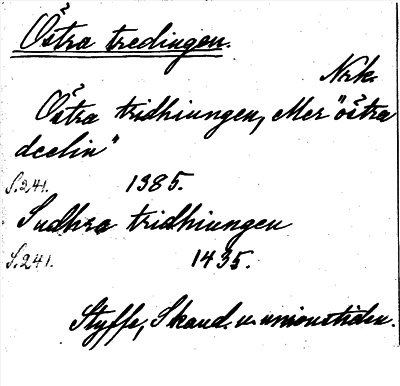 Östra tredingen.
Nrk.
Östra tridhiungen, eller "östra
deelin"
S.241. 1385.
Sudhra tridhiungen
S.241. 1435.
Styffe, Skand. u. unionstiden.